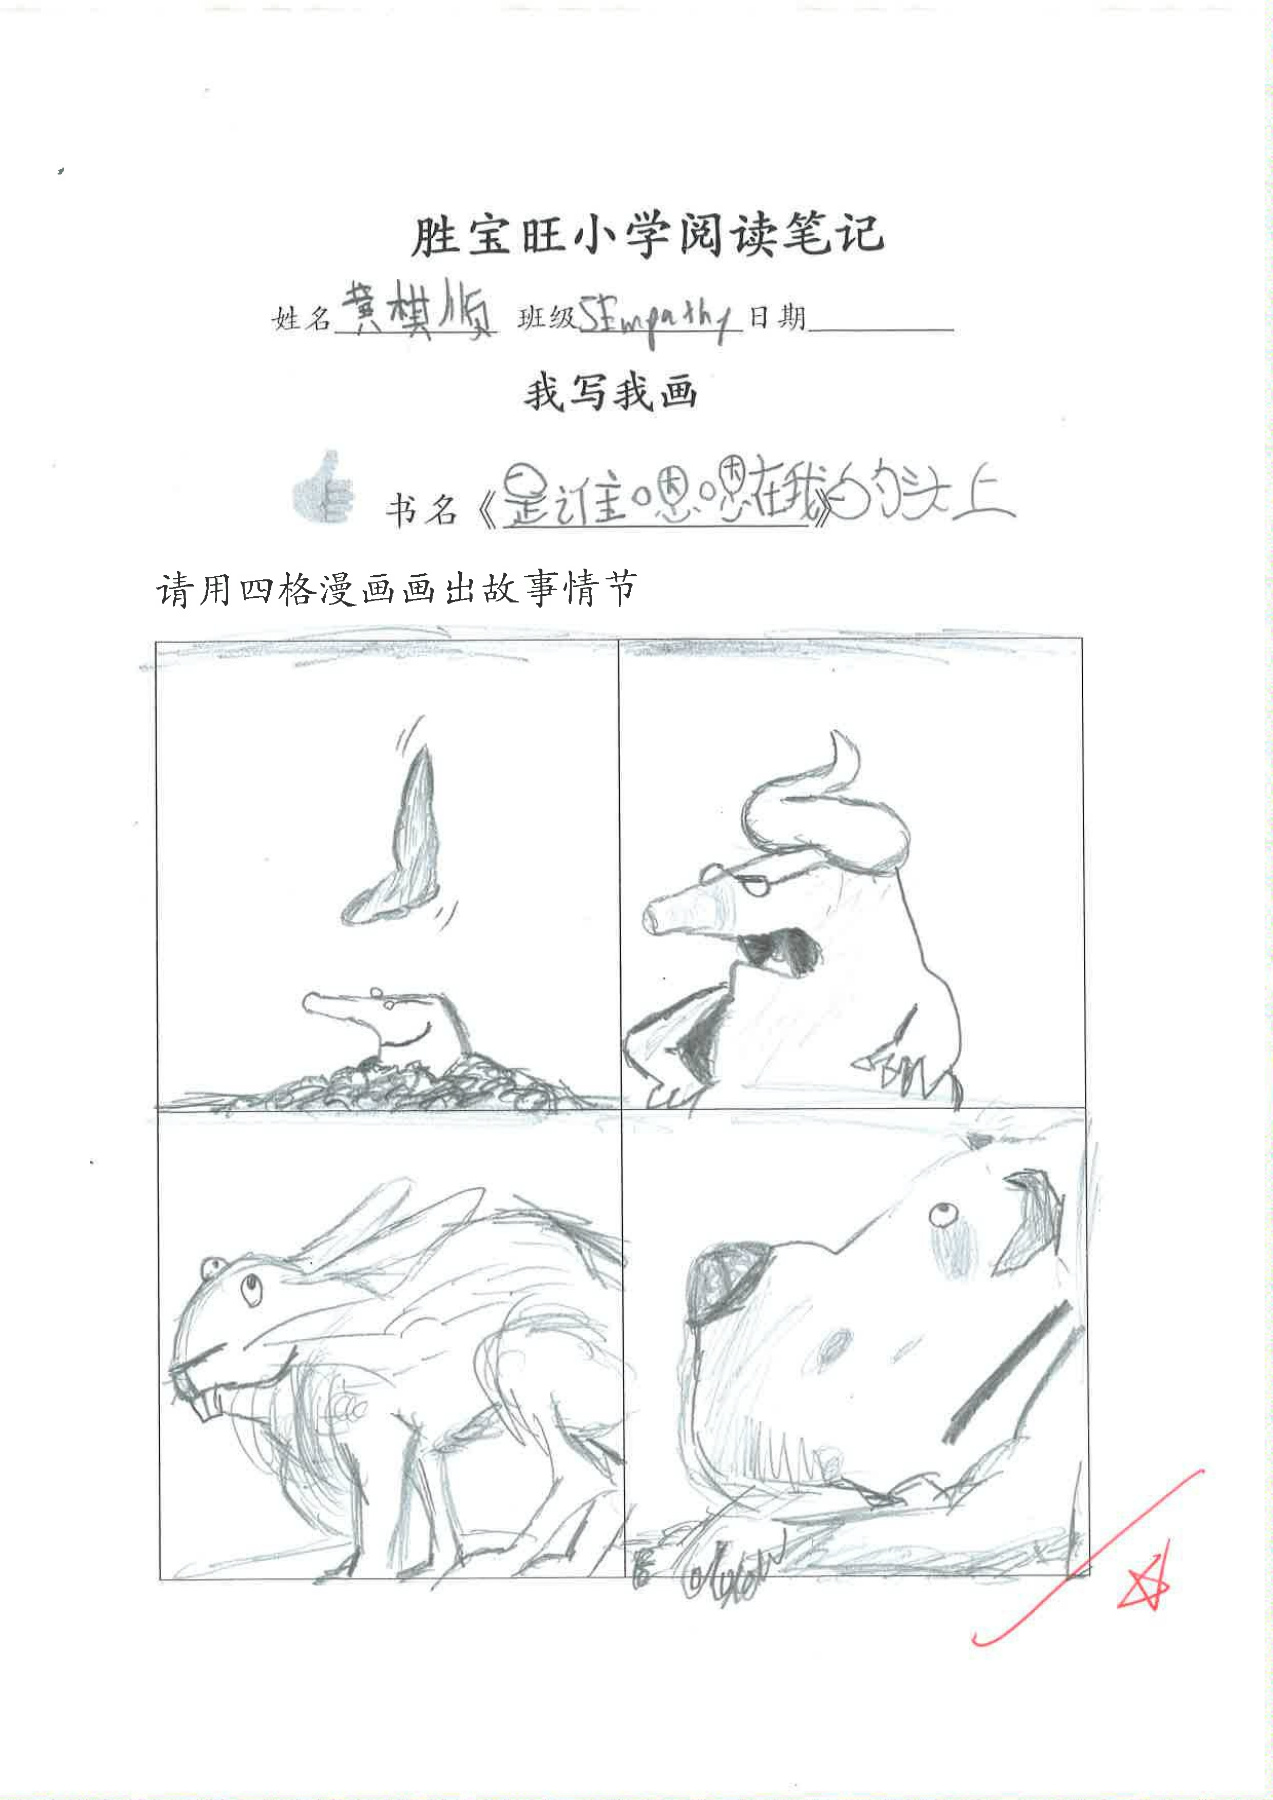 胜宝旺小学阅读笔记
姓名 黄棋顺 班级 5Empathy 日期
我写我画
书名《是谁嗯嗯在我》的头上
请用四格漫画画出故事情节